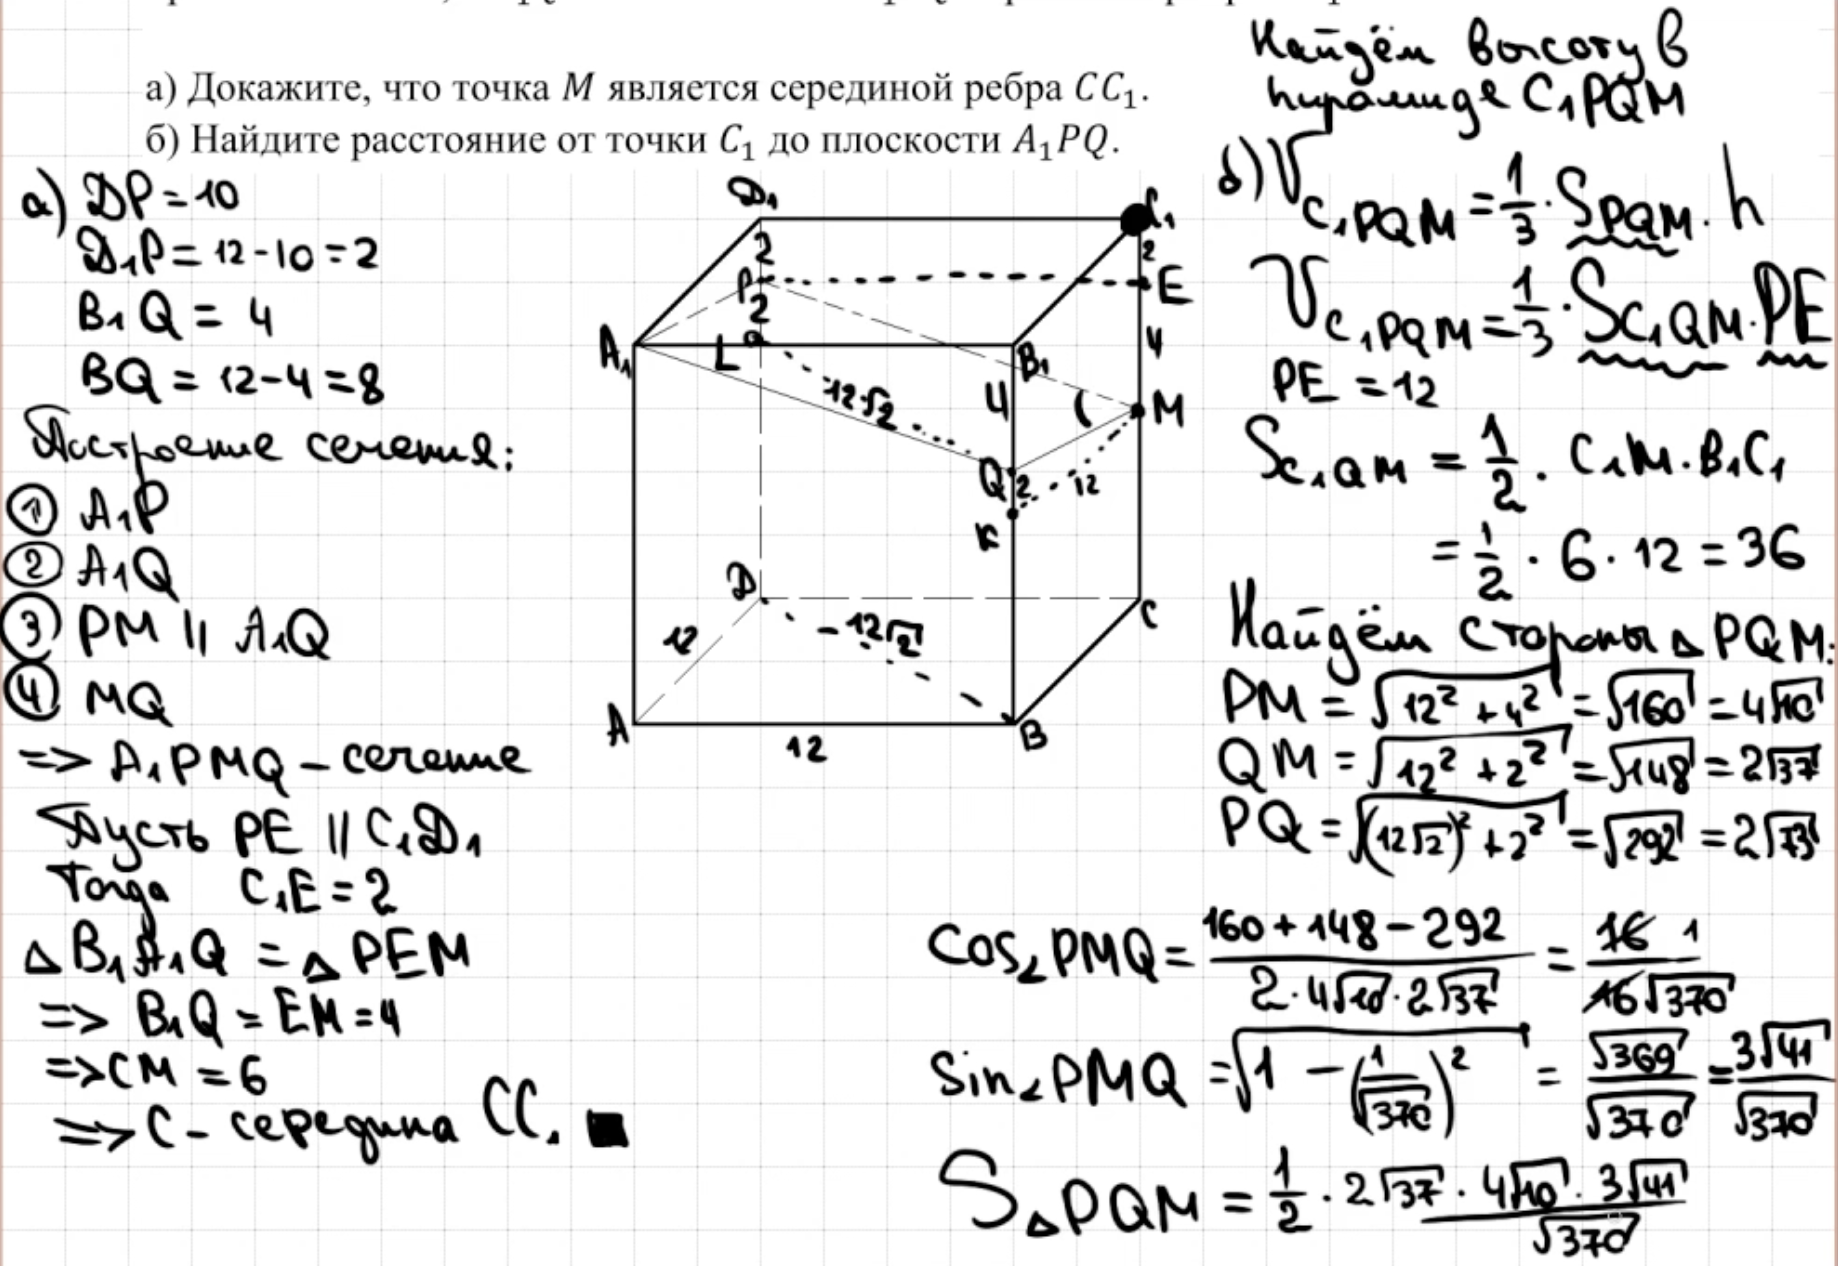 а) Докажите, что точка M является серединой ребра CC₁.
б) Найдите расстояние от точки C₁ до плоскости A₁PQ.
а) DP = 10
D₁P = 12 - 10 = 2
B₁Q = 4
BQ = 12 - 4 = 8
Построение сечения:
① A₁P
② A₁Q
③ PM || A₁Q
④ MQ
=> A₁PMQ - сечение
Пусть PE || C₁D₁
Тогда C₁E = 2
△B₁A₁Q = △PEM
=> B₁Q = EM = 4
=> CM = 6
=> C - середина CC₁ ■
D₁
C₁
2
2
P
E
2
4
A₁
L
B₁
12√2
4
M
Q
2
12
K
D
C
12
12√2
A
12
B
Найдём высоту в
пирамиде C₁PQM
б) V C₁PQM = 1/3 · S PQM · h
V C₁PQM = 1/3 · S C₁QM · PE
PE = 12
S C₁QM = 1/2 · C₁M · B₁C₁
= 1/2 · 6 · 12 = 36
Найдём стороны △PQM:
PM = √(12² + 4²) = √160 = 4√10
QM = √(12² + 2²) = √148 = 2√37
PQ = √((12√2)² + 2²) = √292 = 2√73
cos∠PMQ = (160 + 148 - 292)/(2 · 4√10 · 2√37) = 16 1/16√370
sin∠PMQ = √(1 - (1/√370)²) = √369/√370 = 3√41/√370
S△PQM = 1/2 · 2√37 · 4√10 · 3√41/√370